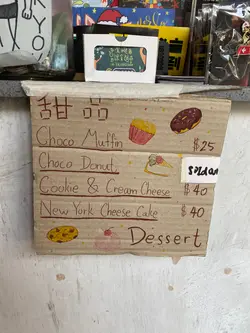 甜品
Choco Muffin $25
Choco Donut
Cookie & Cream Cheese $40
New York Cheese Cake $40
Dessert